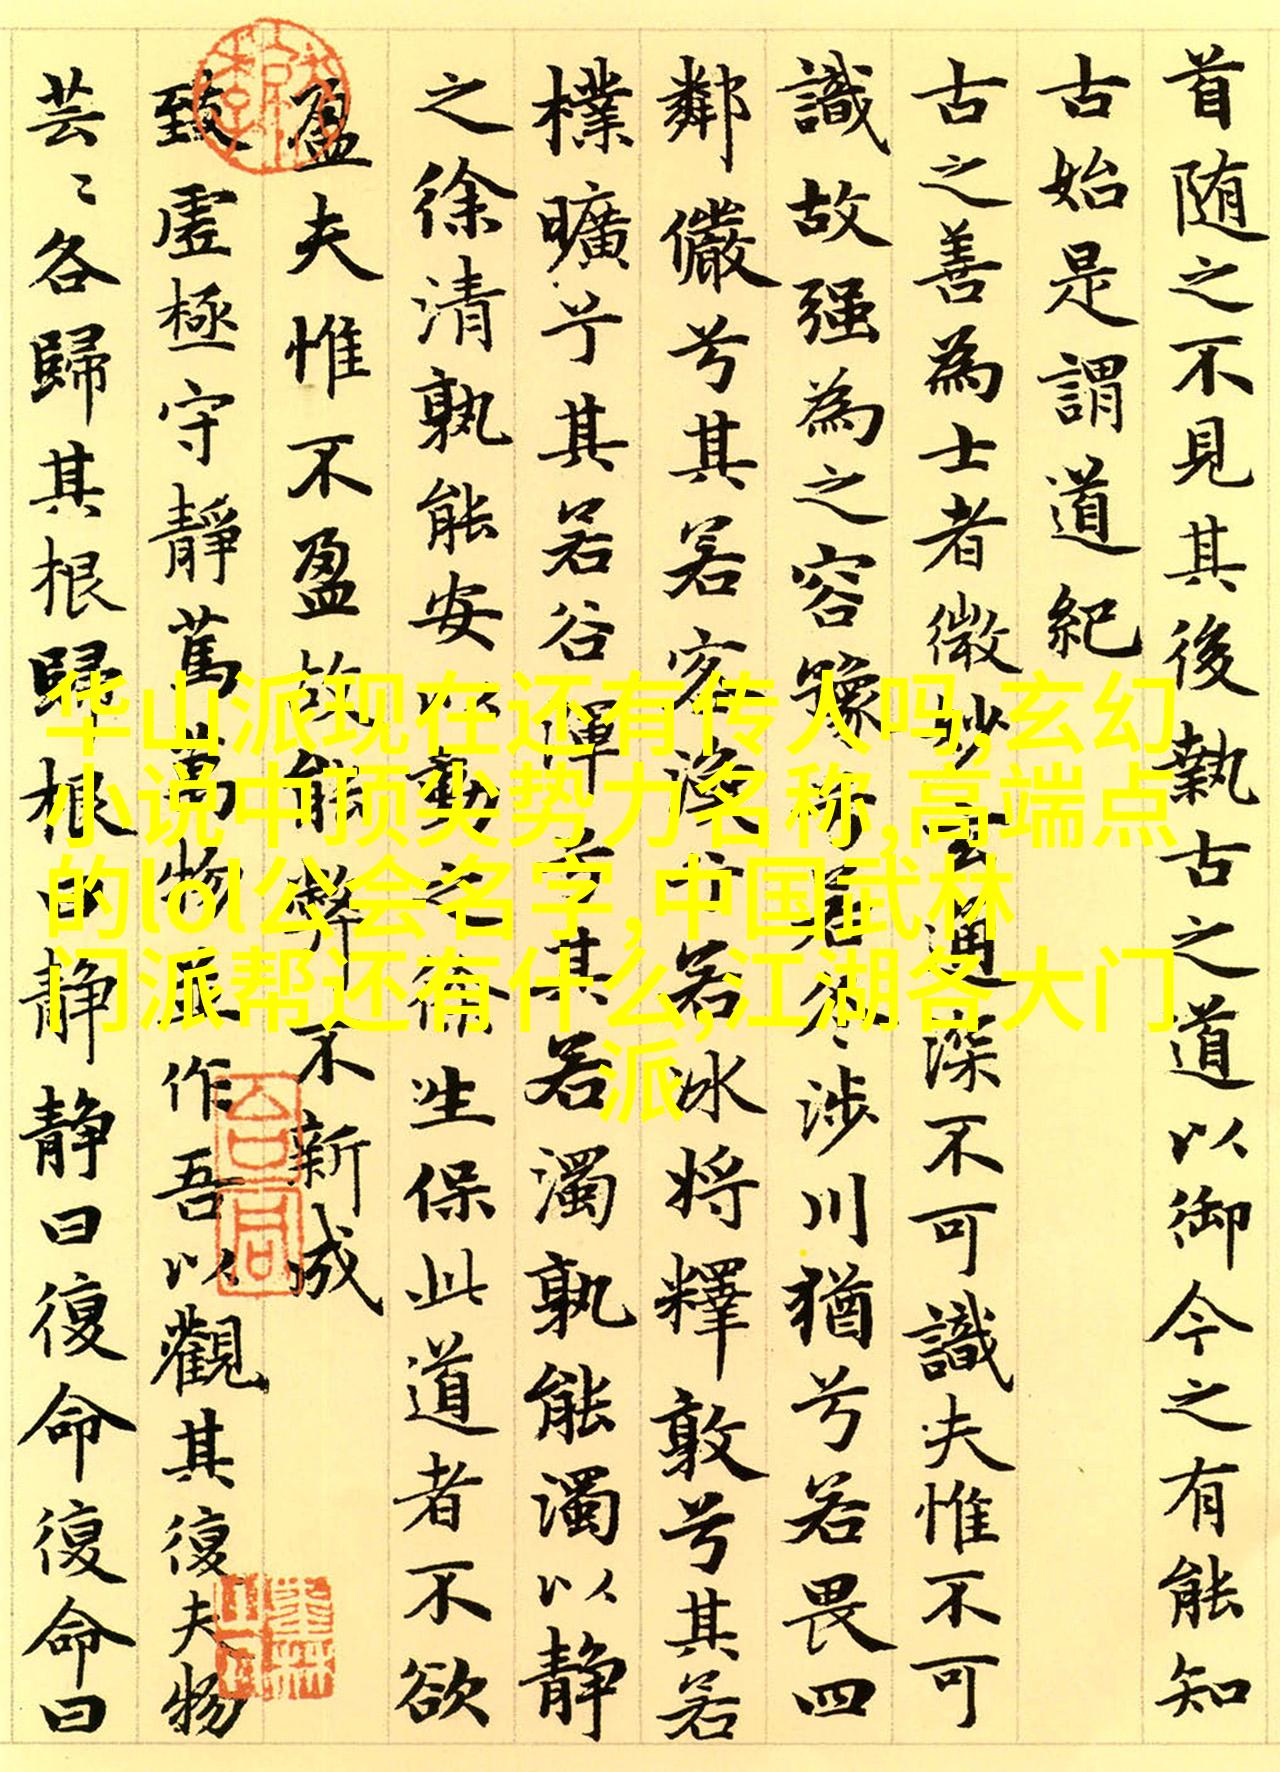 首随之不見其後執古之道以御今之有能知
古始是謂道紀
古之善為士者微妙玄通深不可識夫惟不可
識故强為之容豫兮若冬涉川猶兮若畏四
鄰儼兮其若客渙兮若冰将釋敦兮其若
樸曠兮其若谷渾兮其若濁孰能濁以静
之徐清孰能安以動之徐生保此道者不欲
盈夫惟不盈故能弊不新成
致虚極守靜篤萬物並作吾以觀其復夫物
芸〻各歸其根歸根曰静静曰復命復命曰
华山派现在还有传人吗,玄幻
小说中顶尖势力名称,高端点
的lol公会名字,中国武林
门派帮还有什么,江湖各大门
派